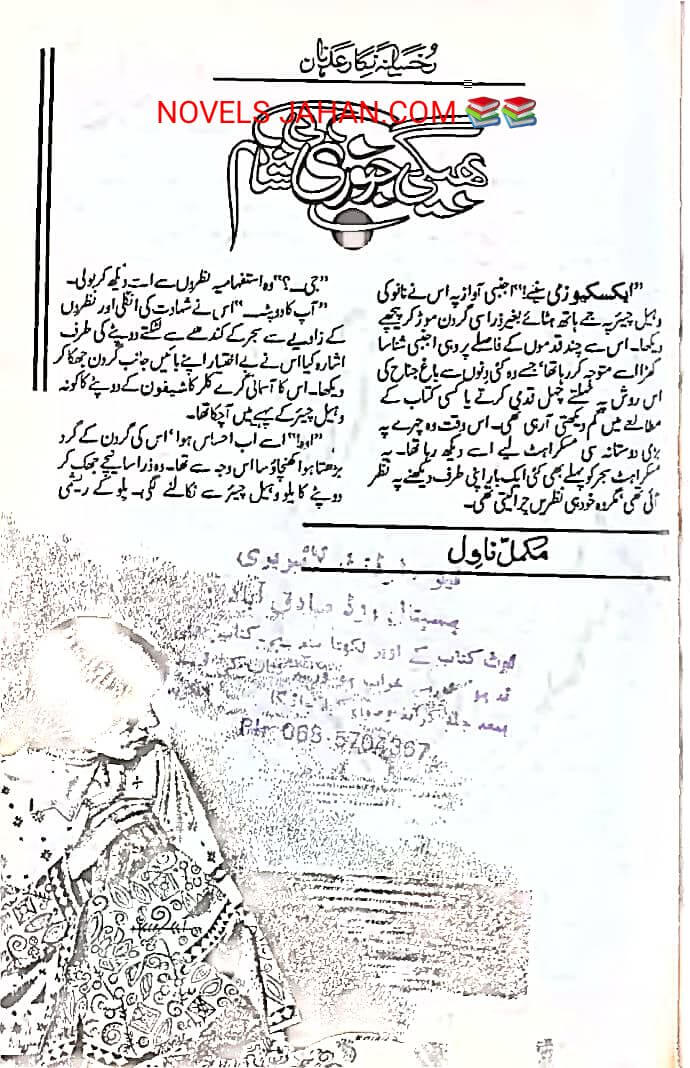 رُخسانہ نگار عدنان
NOVELS JAHAN.COM
بھیگی جنوری کی شام
"ایکسکیوز می سنیے!" اجنبی آواز پہ اس نے نانو کی
وہیل چیئر پہ جمے ہاتھ ہٹائے بغیر ذرا سی گردن موڑ کر پیچھے
دیکھا۔ اس سے چند قدموں کے فاصلے پر وہی اجنبی شناسا
کھڑا اسے متوجہ کر رہا تھا' جسے وہ کئی دنوں سے باغ جناح کی
اس روش پہ ٹہلتے چہل قدمی کرتے یا کسی کتاب کے
مطالعے میں گم دیکھتی آ رہی تھی۔ اس وقت وہ چہرے پہ
بڑی دوستانہ سی مسکراہٹ لیے اسے دیکھ رہا تھا۔ یہ
مسکراہٹ سحر کو پہلے بھی کئی ایک بار اپنی طرف دیکھنے پہ نظر
آئی تھی' مگر وہ خود ہی نظریں چرا لیتی تھی۔
"جی۔۔۔؟" وہ استفہامیہ نظروں سے اسے دیکھ کر بولی۔
"آپ کا دوپٹہ۔۔۔" اس نے شہادت کی انگلی اور نظروں
کے زاویے سے سحر کے کندھے سے لٹکتے دوپٹے کی طرف
اشارہ کیا اس نے بے اختیار اپنے بائیں جانب گردن جھکا کر
دیکھا۔ اس کا آسمانی گرے کلر کا شیفون کے دوپٹے کا کونہ
وہیل چیئر کے پہیے میں آ چکا تھا۔
"اوہ!" اسے اب احساس ہوا' اس کی گردن کے گرد
بڑھتا ہوا کھنچاؤ سا اس وجہ سے تھا۔ وہ ذرا سا نیچے جھک کر
دوپٹے کا پلو وہیل چیئر سے نکالنے لگی۔ پلو کے ریشمی
مکمل ناول
صادق آباد
کتاب کے اوپر لکھنا منع ہے
Ph: 068-5704367